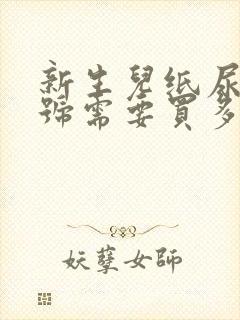 新生兒纸尿
號需要買多
妖孽女師